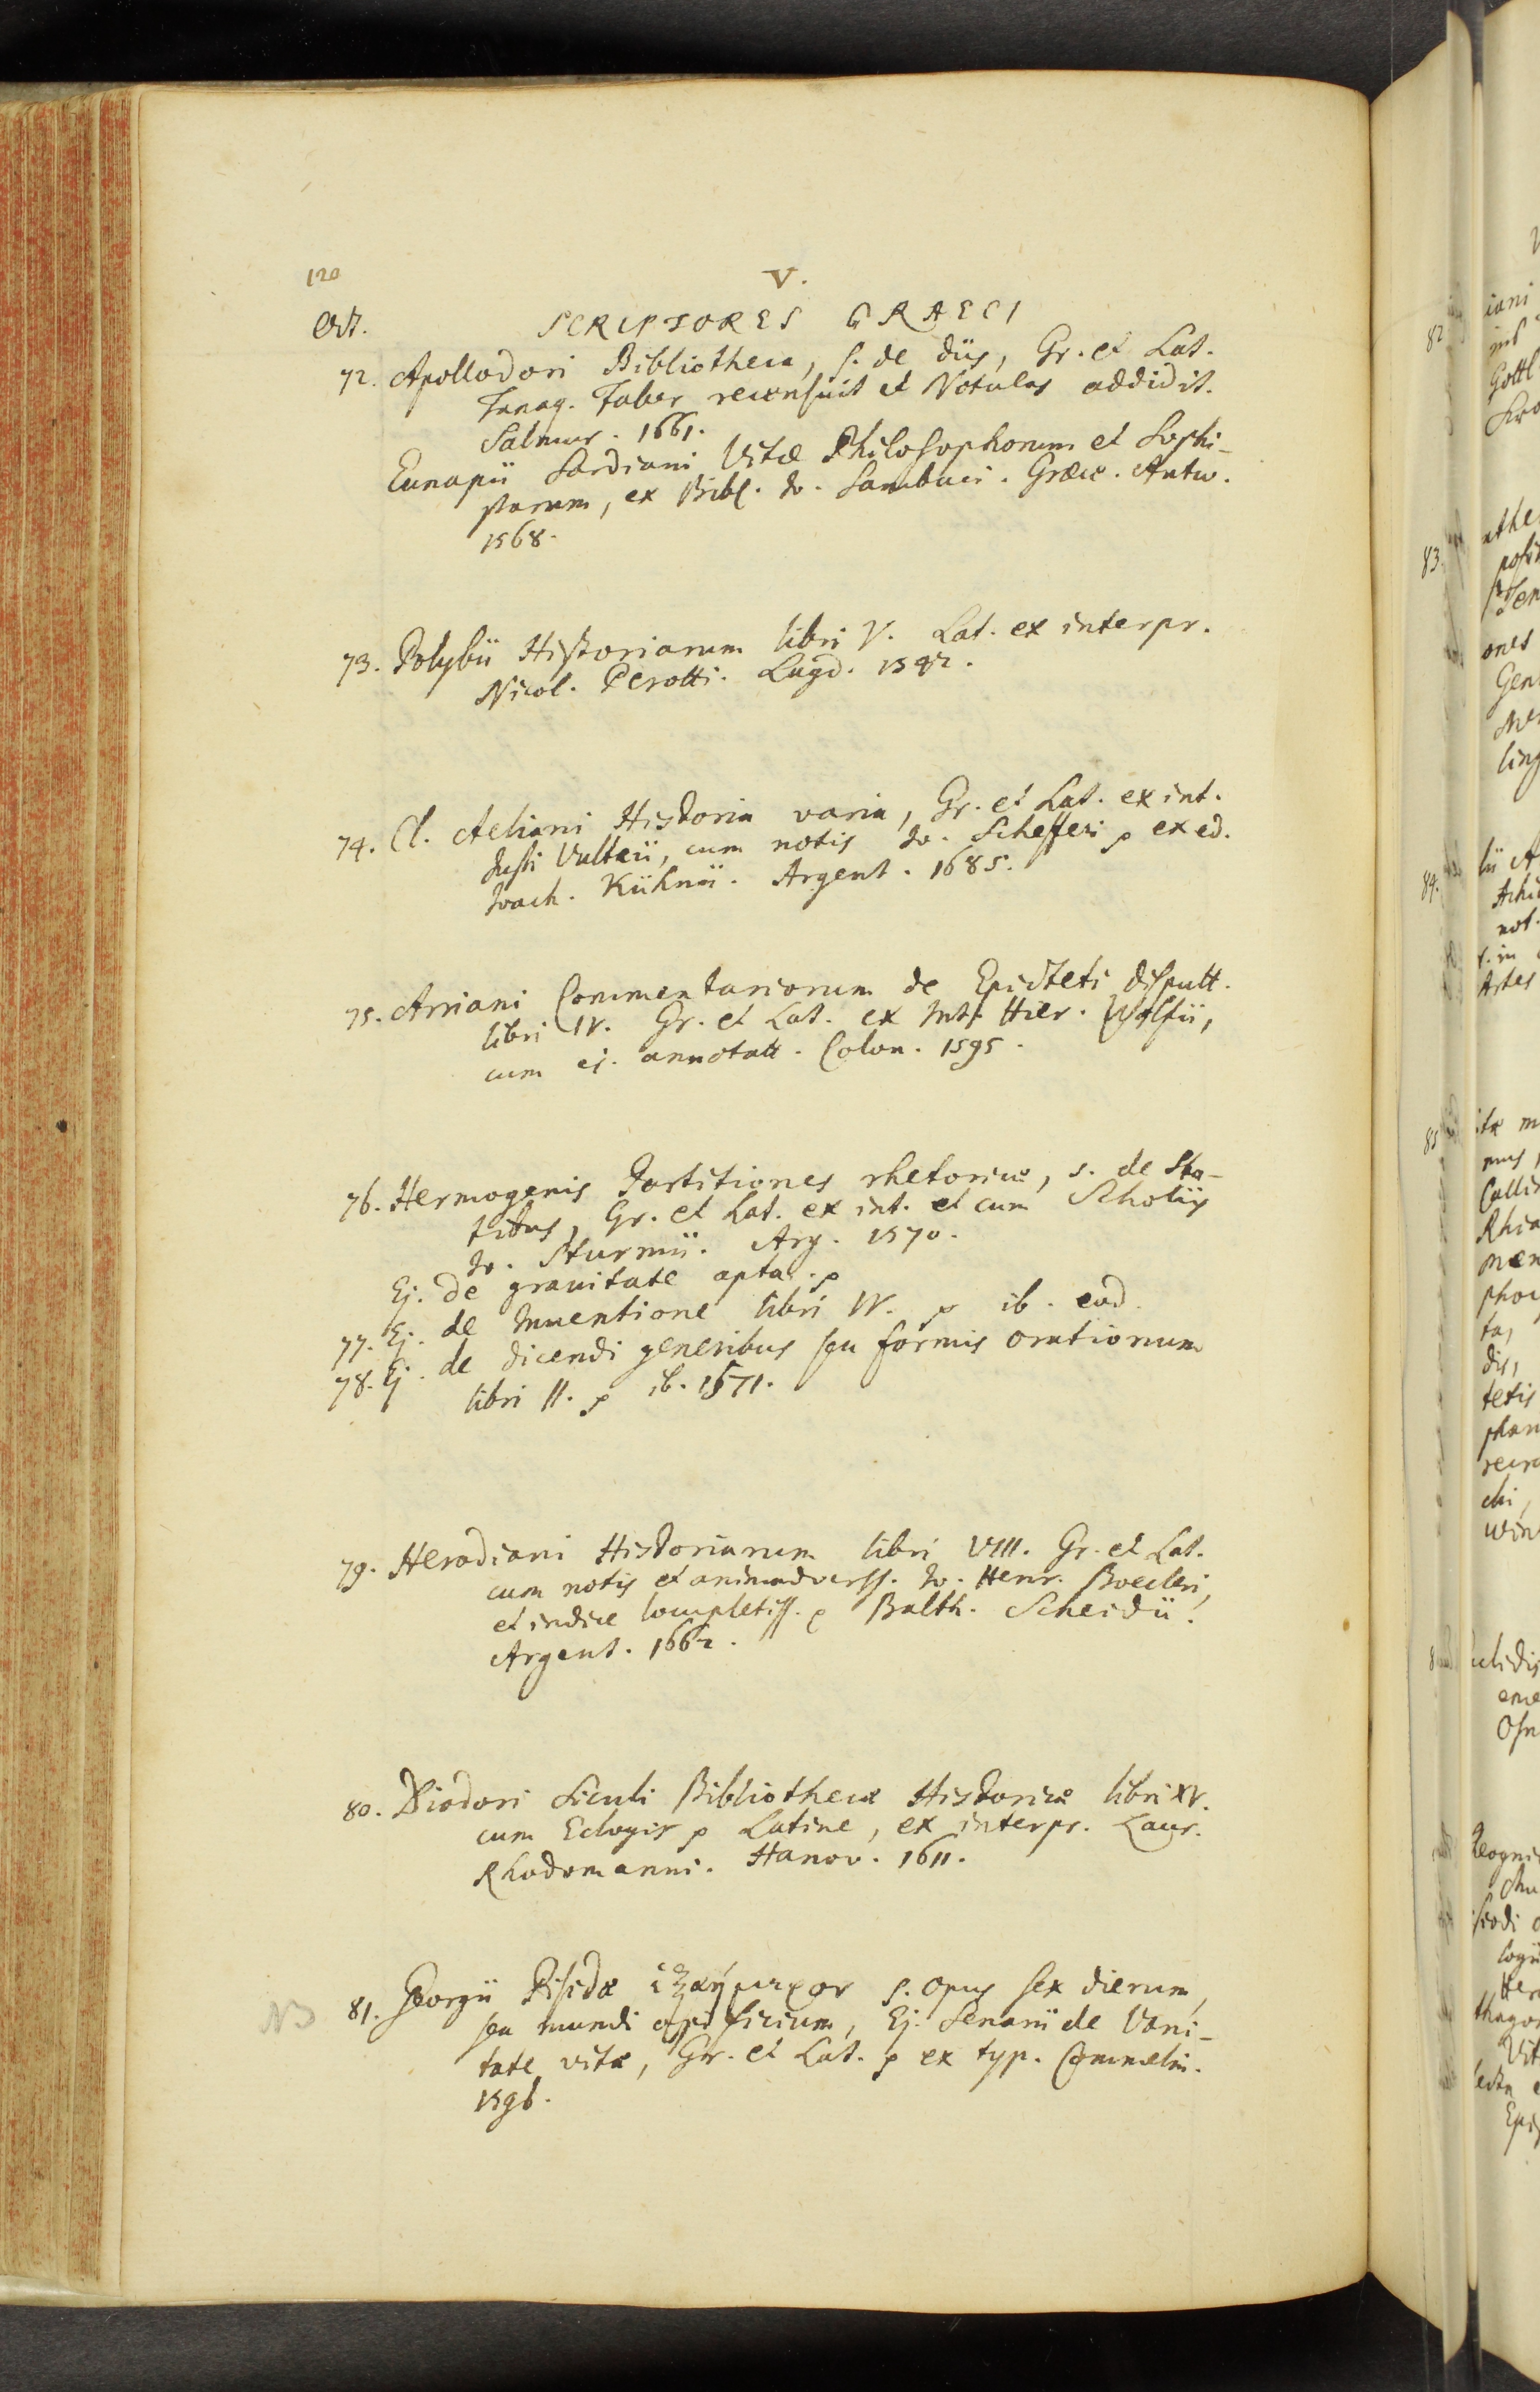 120
V.
Oct. SCRIPTORES GRAECI
72. Apollodori Bibliotheca, s. de diis, Gr. et Lat.
Tanaq. Faber recensuit et Notulas addidit.
Salmur. 1661.
Eunapii Sardiani Vitæ Philosophorum et Sophi-
starum, ex Bibl. Jo. Sambuci. Græce. Antw.
1568.
73. Polybii Historiarum libri V. Lat. ex interpr.
Nicol. Perotti. Lugd. 1542.
74. Cl. Aeliani Historia varia, Gr. et Lat. ex int.
Justi Vulteii, cum notis Jo. Schefferi p ex ed.
Joach. Kühnii. Argent. 1685.
75. Arriani Commentariorum de Epicteti disputt.
libri IV. Gr. et Lat. ex Int. Hier. Wolfii,
cum ej. annotatt. Colon. 1595.
76. Hermogenis Partitiones rhetoricæ, s. de Sta-
tibus, Gr. et Lat. ex int. et cum Scholiis
Jo. Sturmii. Arg. 1570.
Ej. de gravitate apta. p
77. Ej. de Inventione libri IV. p ib. eod.
78. Ej. de dicendi generibus seu formis orationum
libri II. p ib. 1571.
79. Herodiani Historiarum libri VIII. Gr. et Lat.
cum notis et animadverss. Jo. Henr. Boecleri,
et indice locupletiss. p Balth. Scheidii.
Argent. 1662.
80. Diodori Siculi Bibliothecæ Historicæ libri XV.
cum Eclogis p Latine, ex interpr. Laur.
Rhodomanni. Hanov. 1611.
NB 81. Georgii Pisidæ ἑξαήμερον s. opus sex dierum,
seu mundi opificium, Ej. Senarii de Vani-
tate vitæ, Gr. et Lat. p ex typ. Commelin.
1596.
82
iani
Gottl
83.
ones
Gen
ling
84.
not.
Artes
85
Callim
phan